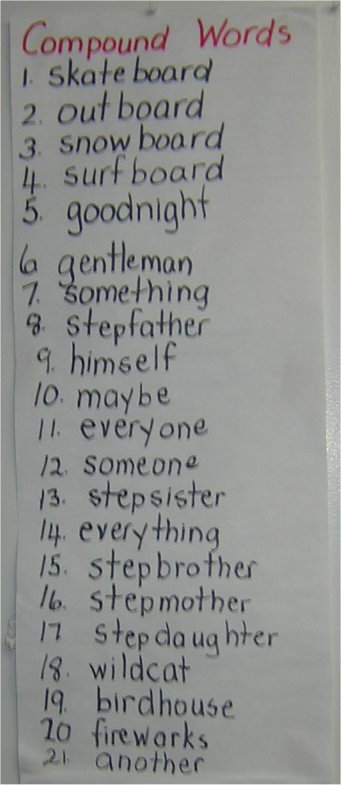 Compound Words
1. skateboard
2. outboard
3. snowboard
4. surfboard
5. goodnight
6. gentleman
7. something
8. stepfather
9. himself
10. maybe
11. everyone
12. someone
13. stepsister
14. everything
15. stepbrother
16. stepmother
17 stepdaughter
18. wildcat
19. birdhouse
20 fireworks
21. another